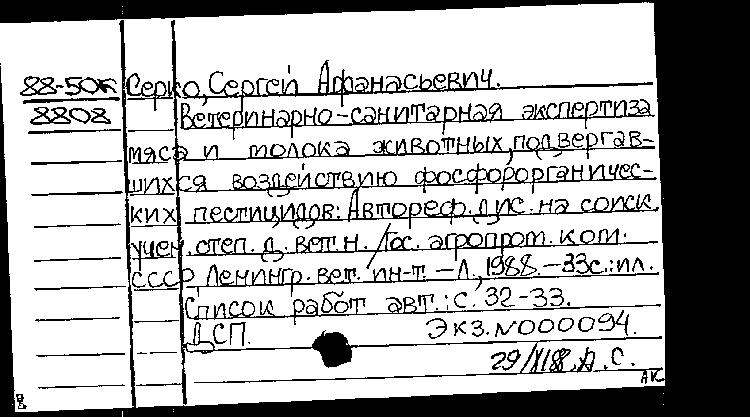 88-50к Серко, Сергей Афанасьевич.
8808 Ветеринарно-санитарная экспертиза
мяса и молока животных, подвергав-
шихся воздействию фосфорорганичес-
ких пестицидов: Автореф. дис. на соиск.
учен. степ. д. вет. н. /Гос. агропром. ком.
СССР, Ленингр. вет. ин-т. - Л., 1988. - 33с.: ил.
Список работ авт.: с. 32-33.
ДСП. Экз. N000094.
29/XI88. С.
АК